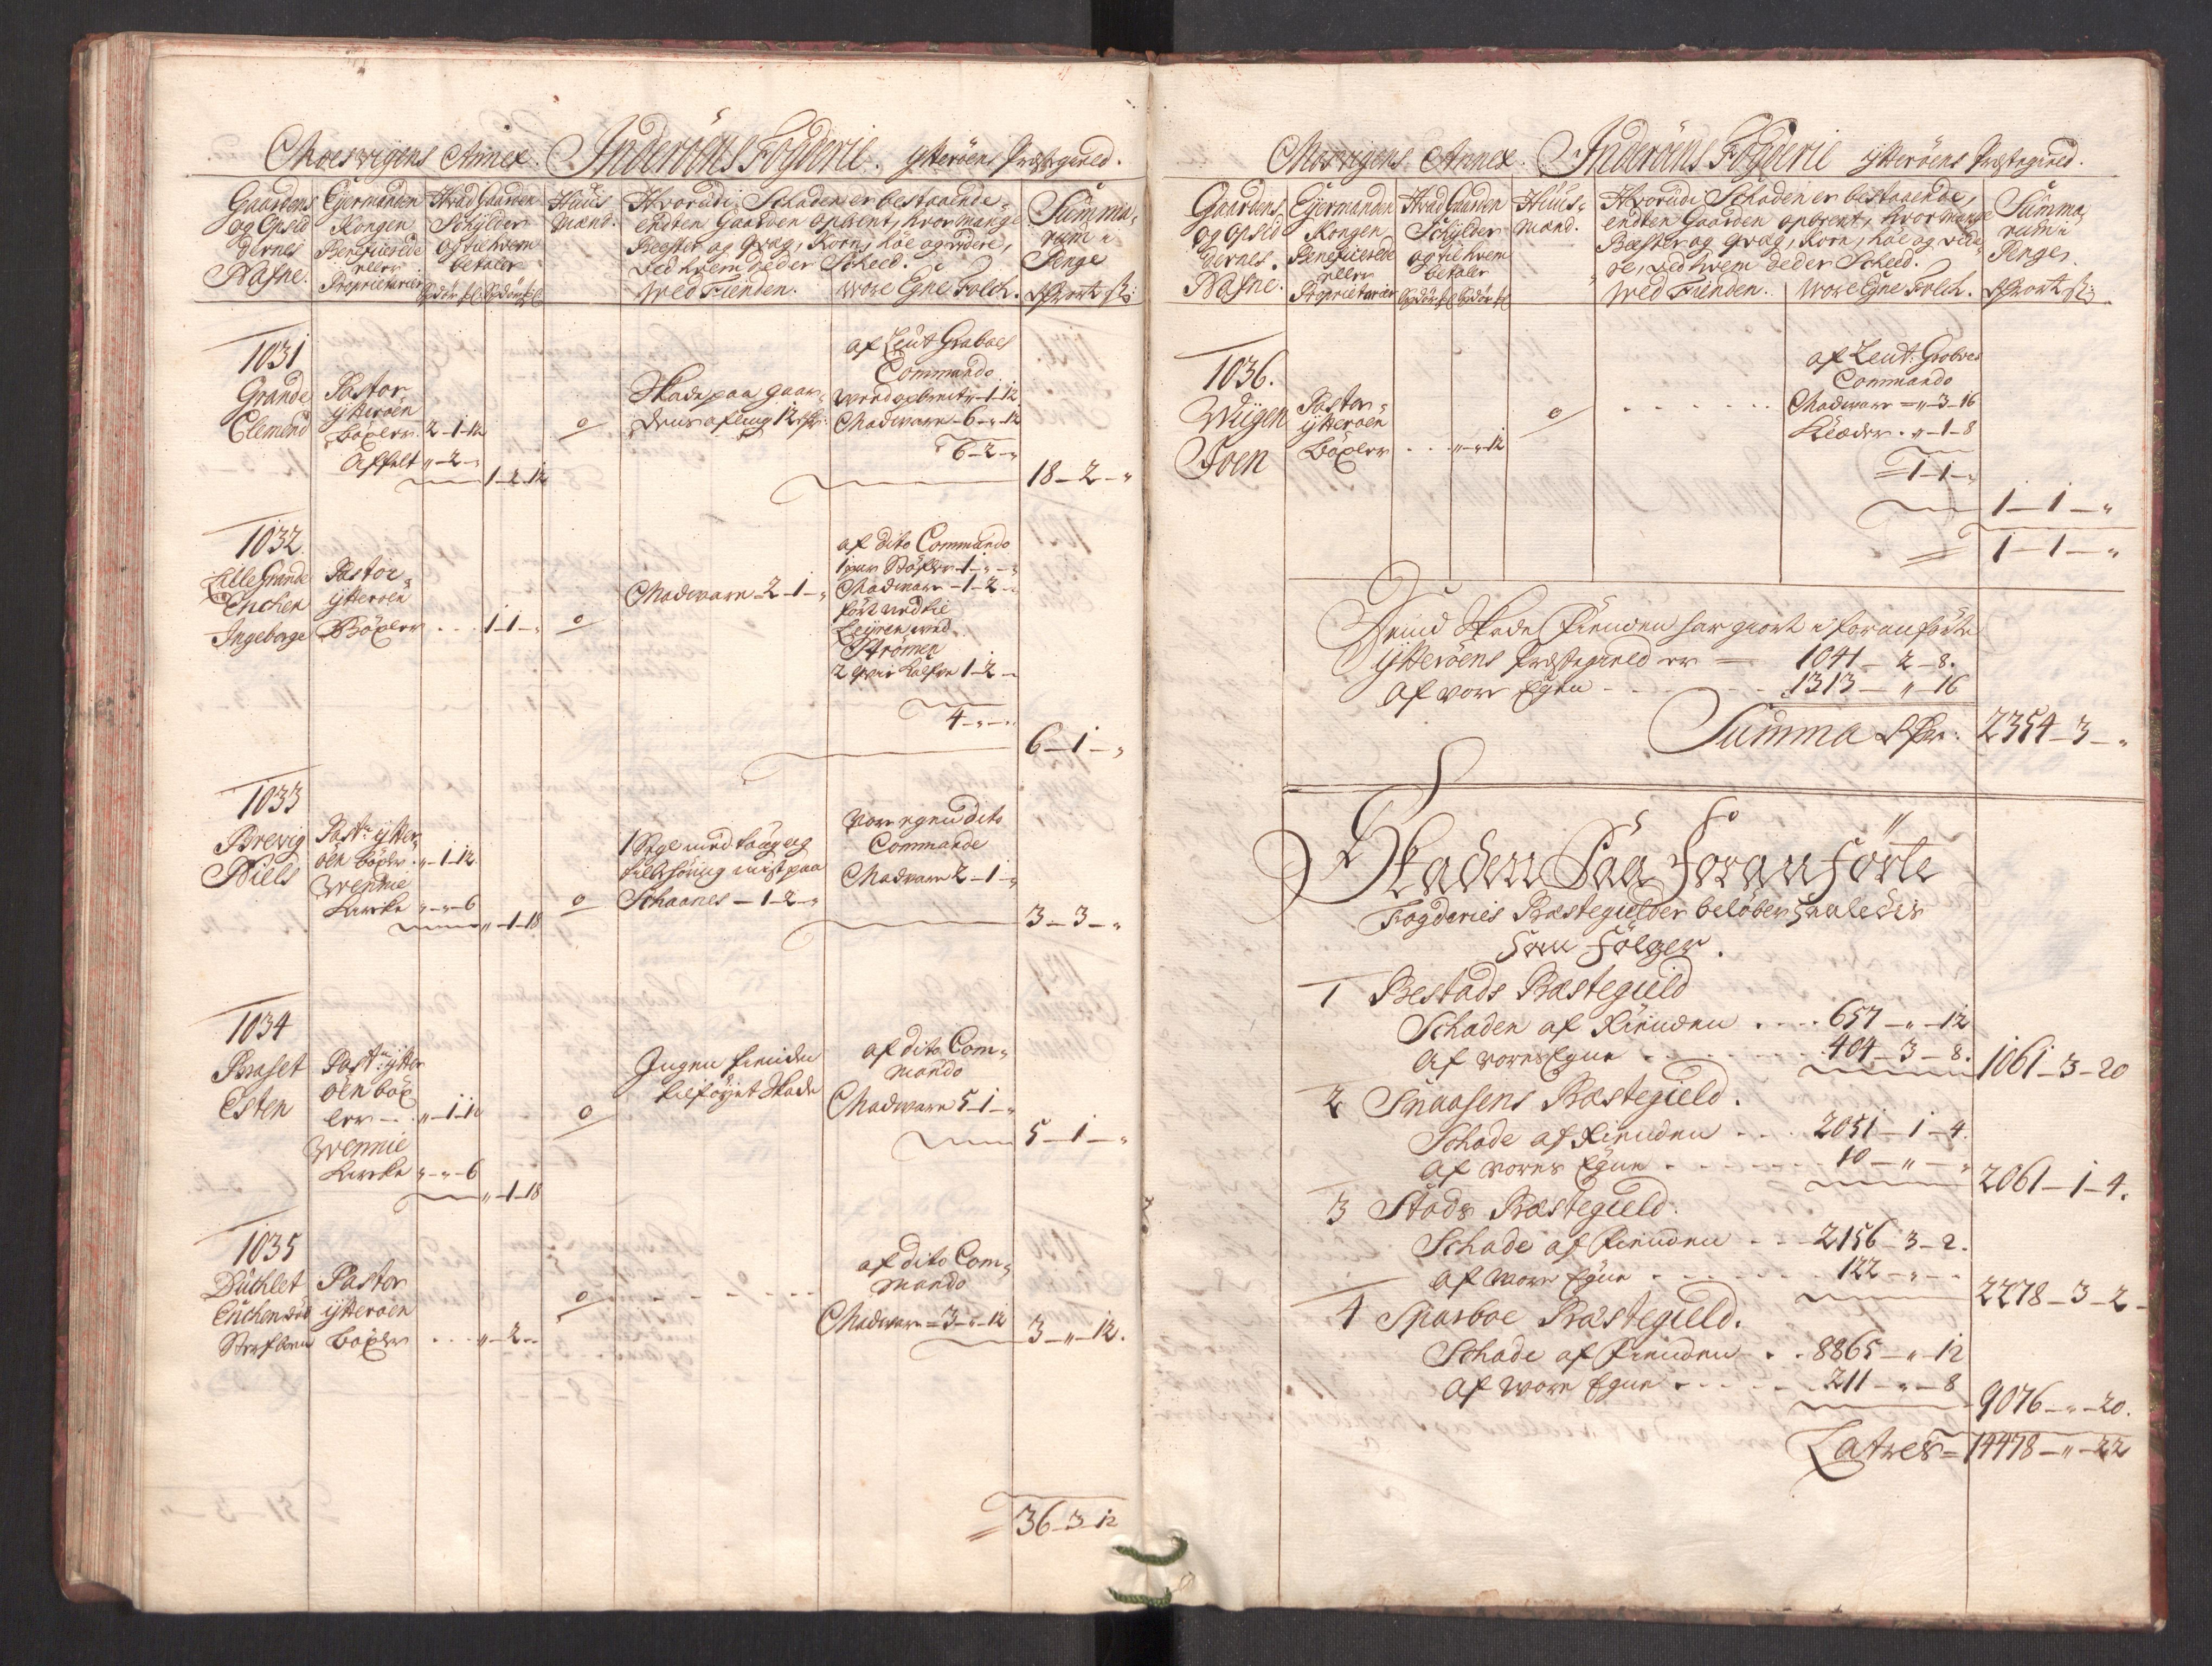 Mosvigens Annex. Inderöens Fogderie. Ytteröens Præstegield.
Gaardens og Opsid dernes Nafne.
Eyermanden Kongen Beneficerede eller Proprietarier
Hvad Gaarden Schylder og til hvem betaler
Huus Mænd.
Hvorudi Schaden er bestaaende, endten Gaarden opbrent, hvor mange Beester og Qvæg, Korn, höe og videre, ved hvem det er Scheed.
Med Fienden. Wore Egne Folch.
Summa rum i Penge
1031
Grande
Clemend
Pastor
ytteröen
böxler 2-1-12
Affelt "-2-"
1-2-12
0
Skade paa gaar
dens afling 12
af Leut Graboes
Commando
1-12
Madware 6-"-12
6-2-"
18-2-"
1032
Lille Grande
Enchen
Ingeborge
Pastor
ytteröen
Böxler 1-1-"
0
Madware 2-1-"
af dito Commando
1 par Stöfler 1-"-"
Madware 1-2-"
fört ned til
Leyren ved
Strömen
2 1-2-"
4-"-"
6-1-"
1033
Brevig
Niels
Past: ytter
öen böxler "-1-12
Wennie
Kircke "-"-6
"-1-18
0
mist paa
Schaanes 1-2-"
Vor egen dito
Commando
Madware 2-1-"
3-3-"
1034
Braset
Esten
Past: ytter
öen böx
ler "-1-12
Wennie
Kircke "-"-6
"-1-18
0
Ingen fiender
tilföyet Skade
af dito Com
mando
Madware 5-1-"
5-1-"
1035
Duchlet
Enchen
Pastor
ytteröen
böxler "-2-"
0
af dito Com
mando
Madware 3-"-12
3-"-12.
36-3-12
Mosvigens Annex. Inderöens Fogderie ytteröens Præstegield.
Gaardens og Opsid dernes Nafne.
Eyermanden Kongen Beneficerede eller Proprietarier
Hvad Gaarden Schylder og til hvem betaler
Huus Mænd.
Hvorudi Schaden er bestaaende, endten Gaarden opbrent, hvor mange Beester og Qvæg, Korn, höe og vide re, ved hvem det er Scheed.
Med Fienden. Wore Egne Folch.
Summa rum i Penge.
1036.
Wiigen
Joen
Pastor
ytteröen
böxler "-"-12
0
af Leut: Graboes
Commando
Madware "-3-16
Klæder "-1-8
1-1-"
1-1-"
1-1-"
Skade Fienden har giort i foranförte
ytteröens Præstegield er 1041-2-8.
Af vore Egen 1313-"-16
Summa 2354-3-"
Skaden Paa Foranförte
Fogderies Præstegielder belöber saaledes
som fölger.
1 Bestads Præstegield
Schaden af Fienden 657-"-12
af vores Egne 404-3-8. 1061-3-20
2 Snaasens Præstegield.
Schade af Fienden 2051-1-4.
af vores Egne 10-"-" 2061-1-4.
3 Stods Præstegield.
Schade af Fienden 2156-3-2.
af wore Egne 122-"-" 2278-3-2
4 Sparboe Præstegield.
Schade af Fienden 8865-"-12
af wore Egne 211-"-8 9076-"-20.
Latres 14478-"-22